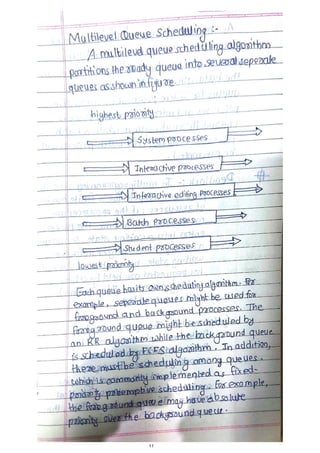 Multilevel Queue Scheduling :-
A multilevel queue scheduling algorithm
partitions the ready queue into several seperate
queues as shown in figure
highest priority
System processes
Interactive processes
Interactive editing processes
Batch processes
Student processes
lowest priority
Each queue has its own scheduling algorithm. For
example, seperate queues might be used for
foreground and background processes. The
foreground queue might be scheduled by
an RR algorithm while the background queue
is scheduled by FCFS algorithm. In addition,
there must be scheduling among queues.
which is commonly implemented as fixed-
priority preemptive scheduling. For example,
the foreground queue may have absolute
priority over the background queue.
11